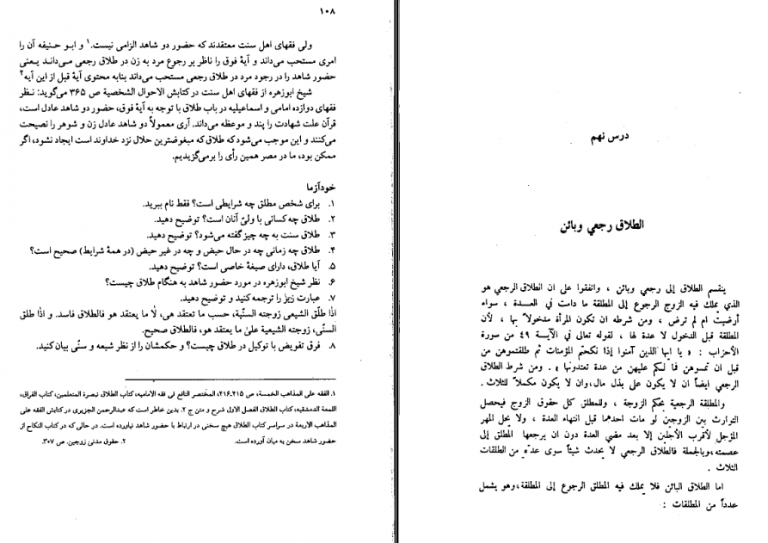 ۱۰۸
ولی فقهای اهل سنت معتقدند که حضور دو شاهد الزامی نیست.۱ و ابو حنیفه آن را
امری مستحب می‌داند و آیهٔ فوق را ناظر بر رجوع مرد به زن در طلاق رجعی می‌داند یعنی
حضور شاهد را در رجود مرد در طلاق رجعی مستحب می‌داند بنابه محتوی آیهٔ قبل از این آیه۲
شیخ ابوزهره از فقهای اهل سنت در کتابش الاحوال الشخصیة ص ۳۶۵ می‌گوید: نظر
فقهای دوازده امامی و اسماعیلیه در باب طلاق با توجه به آیهٔ فوق، حضور دو شاهد عادل است،
قرآن علت شهادت را پند و موعظه می‌داند. آری معمولاً دو شاهد عادل زن و شوهر را نصیحت
می‌کنند و این موجب می‌شود که طلاق که مبغوضترین حلال نزد خداوند است ایجاد نشود، اگر
ممکن بود، ما در مصر همین رأی را برمی‌گزیدیم.
خودآزما
۱. برای شخص مطلق چه شرایطی است؟ فقط نام ببرید.
۲. طلاق چه کسانی با ولیّ آنان است؟ توضیح دهید.
۳. طلاق سنت به چه چیز گفته می‌شود؟ توضیح دهید.
۴. طلاق چه زمانی چه در حال حیض و چه در غیر حیض (در همهٔ شرایط) صحیح است؟
۵. آیا طلاق، دارای صیغهٔ خاصی است؟ توضیح دهید.
۶. نظر شیخ ابوزهره در مورد حضور شاهد به هنگام طلاق چیست؟
۷. عبارت زیر را ترجمه کنید و توضیح دهید.
اذا طلّق الشیعی زوجته السنّیة، حسب ما تعتقد هی، لا ما یعتقد هو فالطلاق فاسد. و اذا طلق
السنّی، زوجته الشیعیة علی ما یعتقد هو، فالطلاق صحیح.
۸. فرق تفویض با توکیل در طلاق چیست؟ و حکمشان را از نظر شیعه و سنّی بیان کنید.
۱. الفقه علی المذاهب الخمسة، ص ۴۱۵ـ۴۱۶، المختصر النافع فی فقه الامامیه، کتاب الطلاق تبصرة المتعلمین، کتاب الفراق،
اللمعة الدمشقیه، کتاب الطلاق الفصل الاول شرح و متن ج ۲. بدین خاطر است که عبدالرحمن الجزیری در کتابش الفقه علی
المذاهب الاربعة در سراسر کتاب الطلاق هیچ سخنی در ارتباط با حضور شاهد نیاورده است. در حالی که در کتاب النکاح از
حضور شاهد سخن به میان آورده است.
۲. حقوق مدنی زوجین، ص ۳۰۷.
درس نهم
الطلاق رجعي وبائن
ينقسم الطلاق إلى رجعي وبائن ، واتفقوا على ان الطلاق الرجعي هو
الذي يملك فيه الزوج الرجوع إلى المطلقة ما دامت في العدة ، سواء
أرضيت ام لم ترض ، ومن شرطه ان تكون المرأة مدخولاً بها ، لأن
المطلقة قبل الدخول لا عدة لها ، لقوله تعالى في الآية ٤٩ من سورة
الأحزاب : « يا ايها الذين آمنوا إذا نكحتم المؤمنات ثم طلقتموهن من
قبل ان تمسوهن فما لكم عليهن من عدة تعتدونها » . ومن شرط الطلاق
الرجعي ايضاً ان لا يكون على بذل مال،وان لا يكون مكملاً للثلاث .
والمطلقة الرجعية بحكم الزوجة ، وللمطلق كل حقوق الزوج فيحصل
التوارث بين الزوجين لو مات احدهما قبل انتهاء العدة ، ولا يحل المهر
المؤجل لأقرب الأجلين إلا بعد مضي العدة دون ان يرجعها المطلق إلى
عصمته،وبالجملة فالطلاق الرجعي لا يحدث شيئاً سوى عدّه من الطلقات
الثلاث .
اما الطلاق البائن فلا يملك فيه المطلق الرجوع إلى المطلقة،وهو يشمل
عدداً من المطلقات :